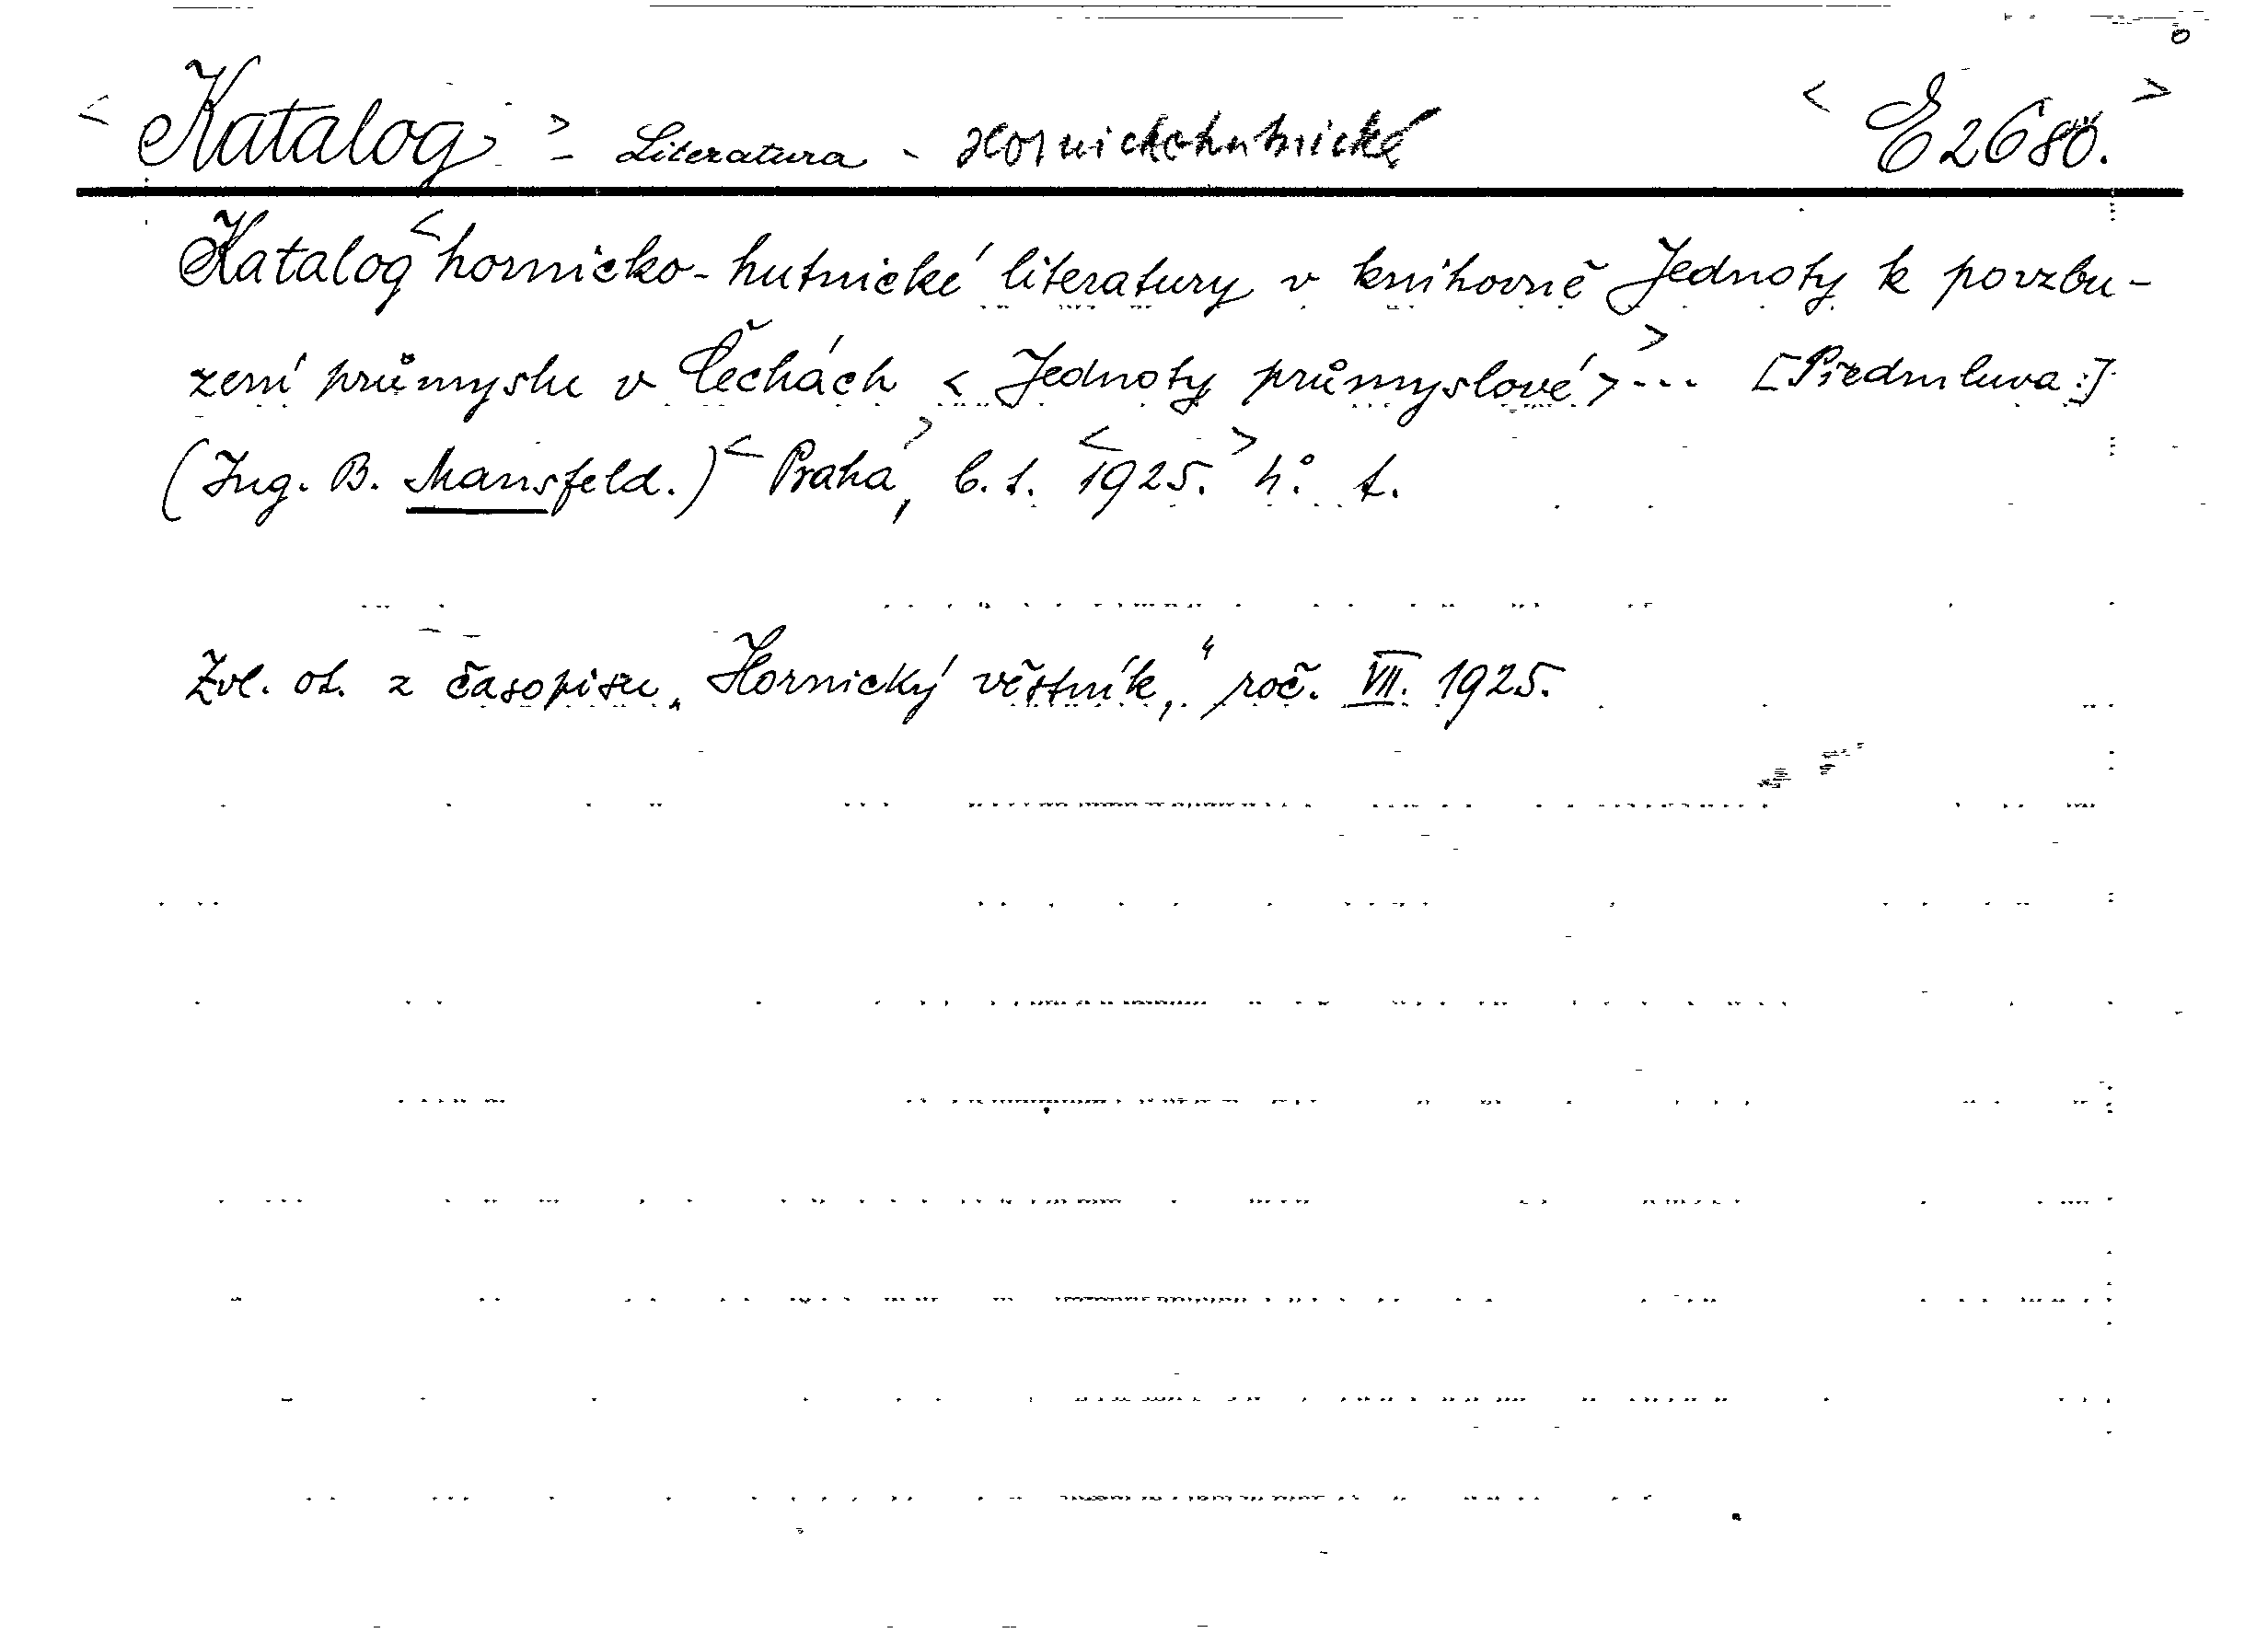 < Katalog > - Literatura - Hornickohutnická < E 2680. >
Katalog < hornicko-hutnické literatury v knihovně Jednoty k povzbu-
zení průmyslu v Čechách < Jednoty průmyslové > > ... [Předmluva:]
(Ing. B. Mansfeld.) < Praha >, b. t. < 1925. > 4°. t.
Zvl. ot. z časopisu „Hornický věstník," roč. VII. 1925.